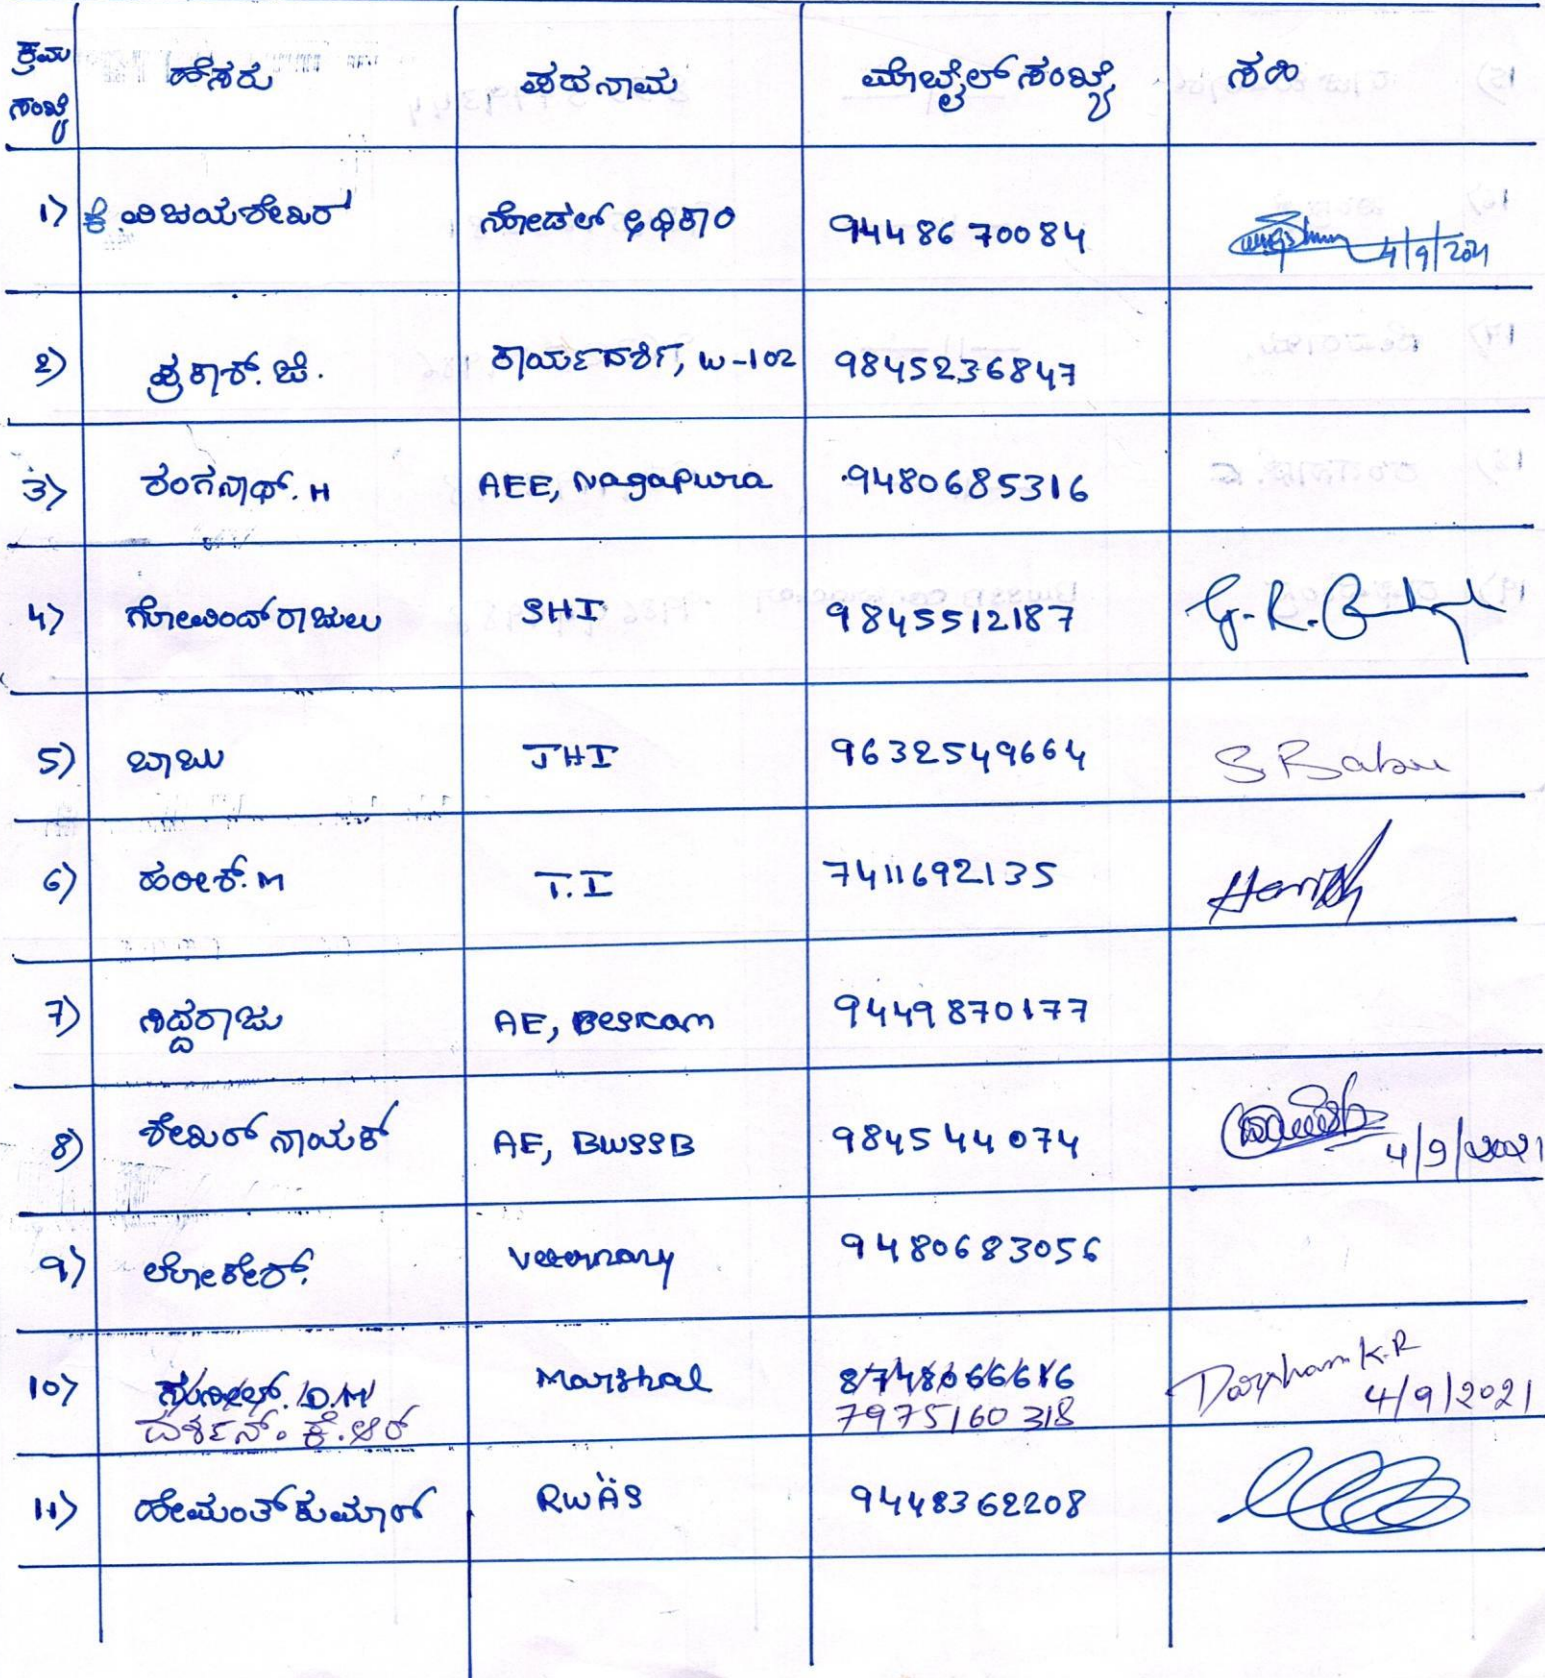 ಕ್ರಮ ಸಂಖ್ಯೆ ಹೆಸರು ಪದನಾಮ ಮೊಬೈಲ್ ಸಂಖ್ಯೆ ಸಹಿ
1) ಕೆ. ವಿಜಯಶೇಖರ್ ನೋಡಲ್ ಅಧಿಕಾರಿ 9448670084 4/9/2021
2) ಪ್ರಕಾಶ್. ಜೆ. ಕಾರ್ಯದರ್ಶಿ, W-102 9845236847
3) ರಂಗನಾಥ್. H AEE, Nagapura 9480685316
4) ಗೋವಿಂದ್ ರಾಜುಲು SHI 9845512187 G. R.
5) ಬಾಬು JHI 9632549664 S Babu
6) ಹರೀಶ್. M T.I 7411692135 Harish
7) ಸಿದ್ದರಾಜು AE, Bescom 9449870177
8) ಶೇಖರ್ ನಾಯಕ್ AE, BWSSB 984544074 4/9/2021
9) ಲೋಕೇಶ್. Veternary 9480683056
10) ಸುನೀಲ್. D.M Marshal 8748066616 Darshan K.R
ದರ್ಶನ್. ಕೆ. ಆರ್ 7975160318 4/9/2021
11) ಹೇಮಂತ್ ಕುಮಾರ್ RWAS 9448362208